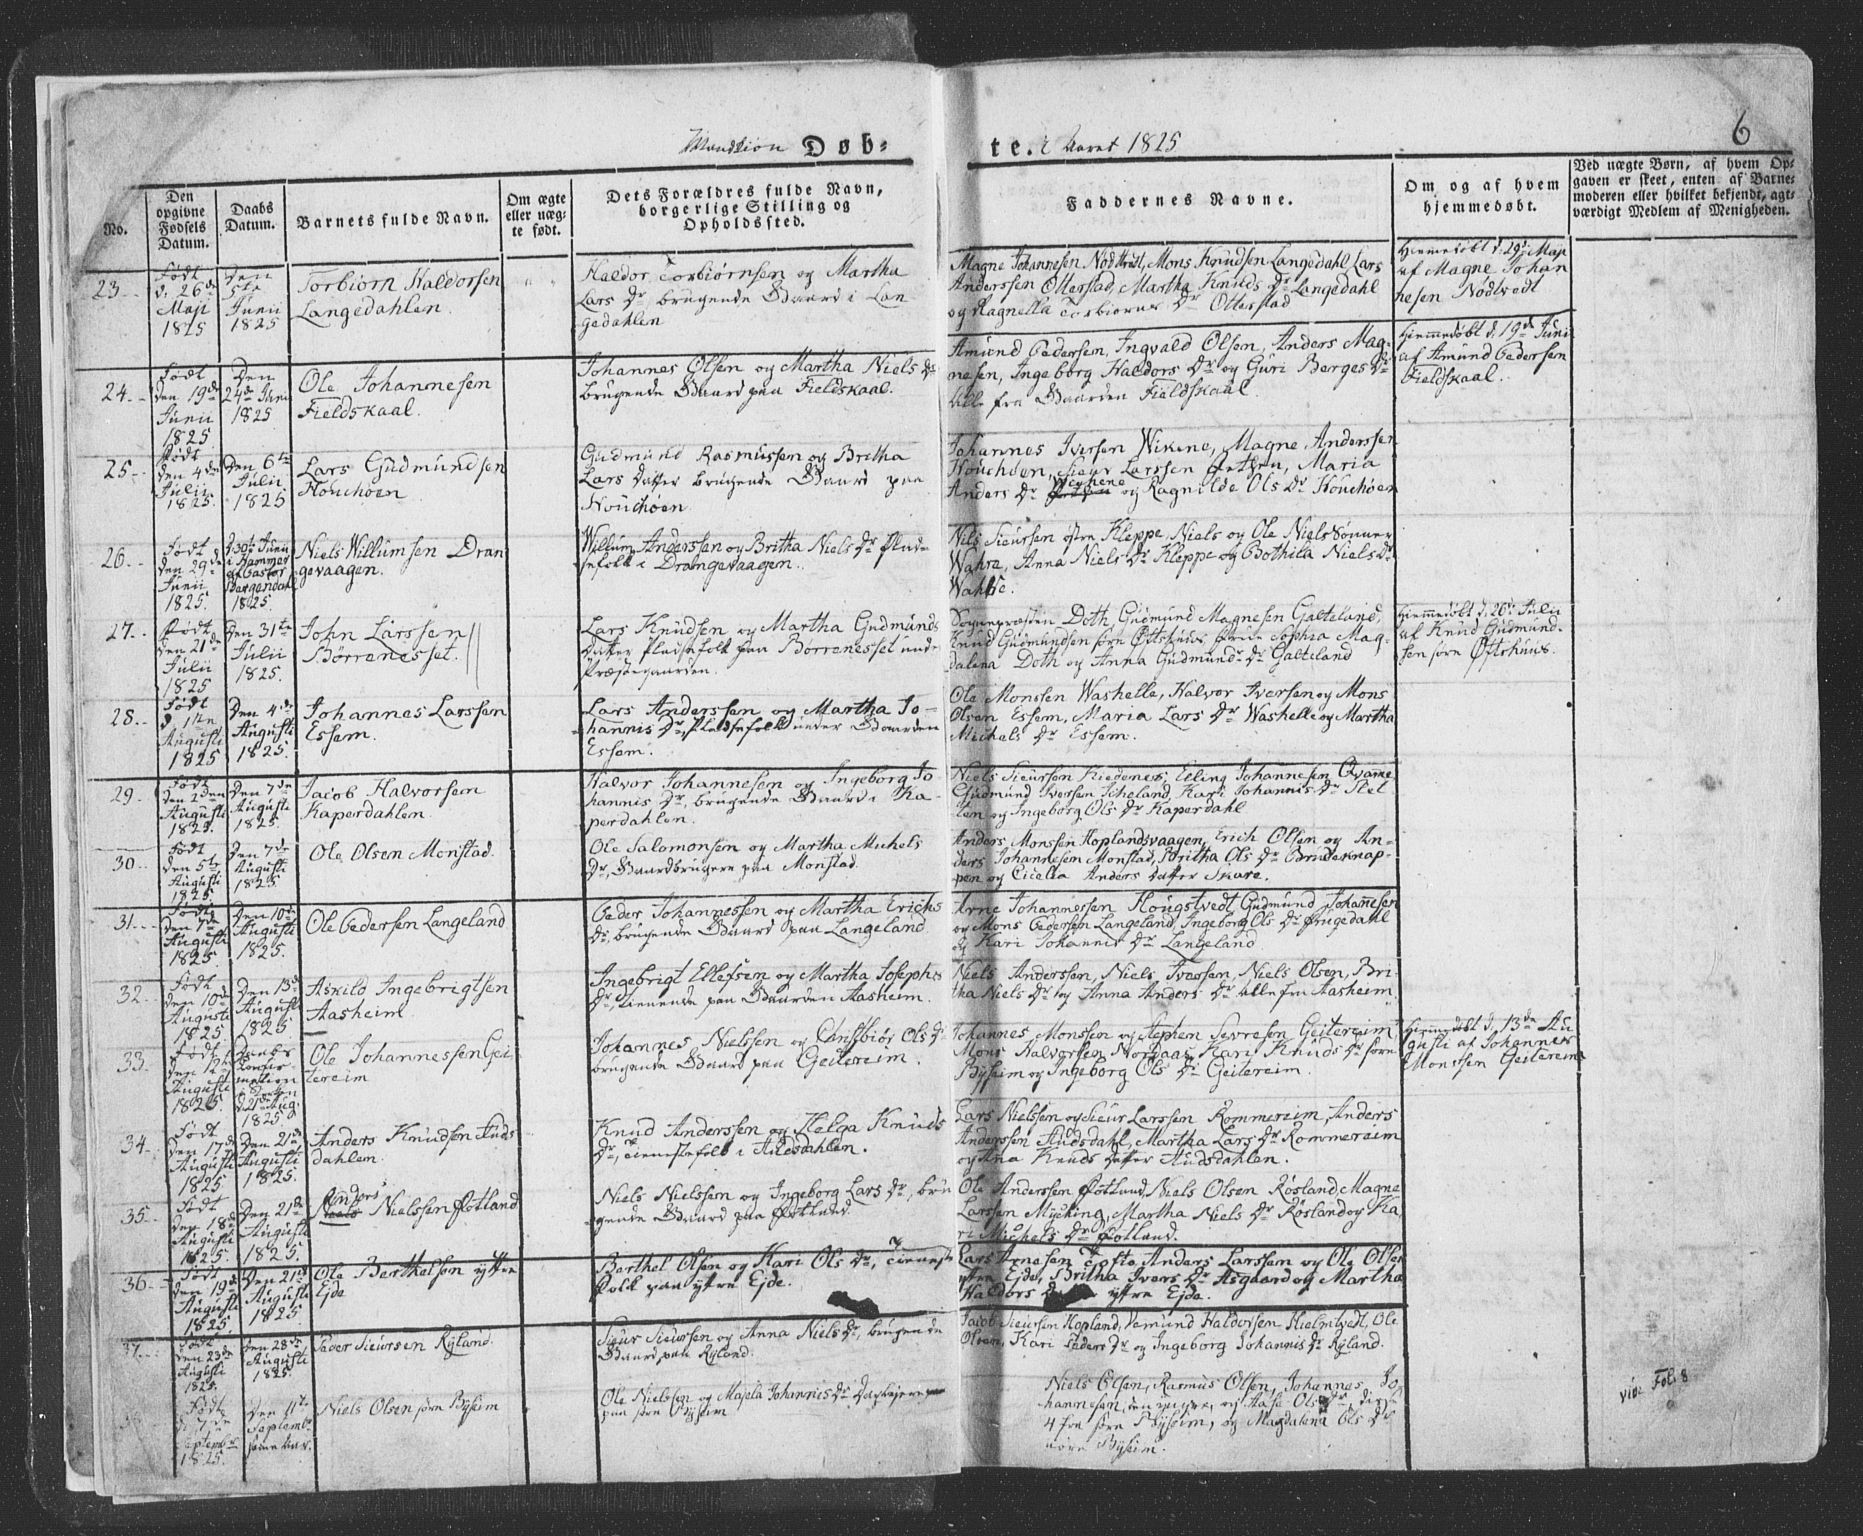 Mandkiøn Døb-
te. i Aaret 1825
6
No.
Den opgivne Fødsels Datum.
Daabs Datum.
Barnets fulde Navn.
Om ægte eller uægte født.
Dets Forældres fulde Navn, borgerlige Stilling og Opholdssted.
Faddernes Navne.
Om og af hvem hjemmedøbt.
Ved uægte Børn, af hvem Opgaven er skeet, enten af Barnemoderen eller hvilket bekjendt, agtværdigt Medlem af Menigheden.
23
Født
d. 26de
Maji
1825
Den
5te
Junii
1825
Torbiørn Haldorsen
Langedahlen
Haldor Torbiørnsen og Martha
Lars Dr brugende Gaard i Lan
gedahlen
Magne Johannesen Nødtvedt, Mons Knudsen Langedahl Lars
Anderssen Otterstad, Martha Knuds Dr Langedahl
og Ragnella Torbiørns Dr Otterstad
Hiemedøbt d. 29de Maji
af Magne Johan
nesen Nødtvedt
24
Født
Den 19de
Junii
1825
Den
24de Juni
1825
Ole Johannesen
Fieldskaal.
Johannes Olsen og Martha Niels Dr
brugende Gaard paa Fieldskaal.
Amund Pedersen, Ingvald Olsen, Anders Mag-
nesen, Ingeborg Haldors Dr og Guri Børges Dr
alle fra Gaarden Fieldskaal
Hiemmedøbt d. 19de Juni
af Amund Pedersen
Fieldskaal.
25
Født
den 4de
Julii
1825
Den 6te
Julii
1825
Lars Gudmundsen
Houchøen
Gudmund Rasmussen og Britha
Lars Datter brugende Gaard paa
Houchøen
Johannes Iversen Wikene, Magne Anderssen
Houchøen, Sieur Larssen, Maria
Anders Dr og Ragnilde Ols Dr Houchøen
26
Født
den 29de
Junii
1825
d. 30te Junii
i Hammer
af Pastor
1825.
Niels Willumsen Dran
gevaagen.
Willum Anderssen og Britha Niels Dr Plad-
sefolk i Drangevaagen.
Nils Sieursen østre Kleppe, Niels og Ole Niels Sønner
Wahre, Anna Niels Dr Kleppe og Bothila Niels Dr
Wahre.
27
Født
Den 21de
Julii
1825
Den 31te
Julii
1825.
John Larssen
Børrenesset.
Lars Knudsen og Martha Gudmunds
Datter Pladsefolk paa Børrenesset unde
Præstegaarden.
Sognepræsten Doth, Gudmund Magnesen Galteland,
Knud Gudmundsen søre Øftshuus, Sophia Mag-
dalena Doth og Anna Gudmunds Dr Galteland
Hiemmedøbt d. 26de Julii
af Knud Gudmund-
sen søre Øftshuus.
28
Født
d. 1ste
Augusti
1825
Den 4de
Augusti
1825.
Johannes Larssen
Essem.
Lars Anderssen og Martha Jo-
hannis Dr, Pladsefolk under Gaarden
Essem.
Ole Monssen Washelle, Halvor Iversen og Mons
Olsen Essem, Maria Lars Dr Washelle og Martha
Michels Dr Essem.
29
Født
Den 2den
Augusti
1825.
Den 7de
Augusti
1825.
Jacob Halvorsen
Kaperdahlen.
Halvor Johannesen og Ingeborg Jo-
hannis Dr, brugende Gaard i Ka-
perdahlen.
Niels Sieursen Kiedenes, Elling Johannesen Qvame
Gudmund Iversen Icheland, Kari Johannis Dr Slet
ten og Ingeborg Ols Dr Kaperdahl
30
Født
Den 5te
Augusti
1825.
Den 7de
Augusti
1825
Ole Olsen Monstad
Ole Salomonsen og Martha Michels
Dr, Gaardbrugere paa Monstad
Anders Monssen Hoplandsvaagen, Erich Olsen og An-
ders Johannesen Monstad, Britha Ols Dr Brudeknap-
pen og Cicelia Anders Datter Skare.
31
Født
Den 7de
Augusti
1825
Den 10de
Augusti
1825.
Ole Pedersen Langeland
Peder Johannessen og Martha Erichs
Dr, brugende Gaard paa Langeland
Arne Johannessen Hougstvedt Gudmund Johannesen
og Mons Pedersen Langeland, Ingeborg Ols Dr
og Kari Johannis Dr Langeland
32
Født
Den 10de
Augusti
1825
Den 13de
Augusti
1825
Askild Ingebrigtsen
Aasheim
Ingebrigt Ellefsen og Martha Josephs
Dr, tienende paa Gaarden Aasheim.
Niels Anderssen, Niels Iverssen, Niels Olsen, Bri-
tha Niels Dr og Anna Anders Dr alle fra Aasheim
33
Født
Den 12te
Augusti
1825
Daabs
Confir-
mation
d. 21de Aug.
1825
Ole Johannessen Gei-
tereim
Johannes Nielssen og Christbiør Ols Dr
brugende Gaard paa Geitereim
Johannes Monssen og Stephen Geitereim
Mons Halvorsen Nordaas, Kari Knuds Dr søre
Bysheim og Ingeborg Ols Dr Geitereim.
Hiemmedøbt d. 13de Au
gusti af Johannes
Monssen Geitereim
34
Født
Den 17de
Augusti
1825
Den 21de
Augusti
1825.
Anders Knudsøn Auds
dahlen.
Knud Anderssen og Helga Knuds
Dr, Tienestefolk i Audsdahlen.
Lars Nielssen og Sieur Larssen Rommereim, Anders
Anderssen Audsdahl, Martha Lars Dr Rommereim
og Ana Knuds Datter Audsdahlen.
35
Født
Den 18de
Augusti
1825.
Den 21de
Augusti
1825.
Anders
Niels Nielssen Fotland
Niels Nielssen og Ingeborg Lars Dr, bru
gende Gaard paa Fotland
Ole Anderssen Fotland, Niels Olsen Røsland, Magne
Larssen Mycking, Martha Niels Dr Røsland og Ka
ri Michels Dr Fotland.
36
Født
Den 19de
Augusti
1825.
Den 21de
Augusti
1825
Ole Berthelsen yttre
Ejde
Berthel Olsen og Kari Ols Dr, Tieneste
folk paa yttre Ejde.
Lars Arnesen Tofte, Anders Larssen og Ole Olsen
yttre Ejde, Britha Ivers Dr Asgaard og Martha
Haldors yttre Ejde.
37
Født
Den 23de
Augusti
1825.
Den 28de
Augusti
1825.
Peder Sieursen Ryland
Sieur Sieurssen og Anna Niels Dr, brugende
Gaard paa Ryland.
Jacob Sieurssen Hopland, Vemund Haldorsen Hielmtvedt, Ole
Olsen, Kari Peders Dr og Ingeborg Johannis Dr Ryland.
Født
d. 7de
Septembr
1825.
Den 11te
Septembr
Niels Olsen søre Bysheim
Ole Nielssen og Majela Johannis Dr
paa søre Bysheim
Niels Olsen, Rasmus Olsen, Johannes Jo
hannesen, den yngre, og Aase Ols Dr, disse
4 fra søre Bysheim, og Magdalena Ols Dr
nøre Bysheim.
vide Fol: 8